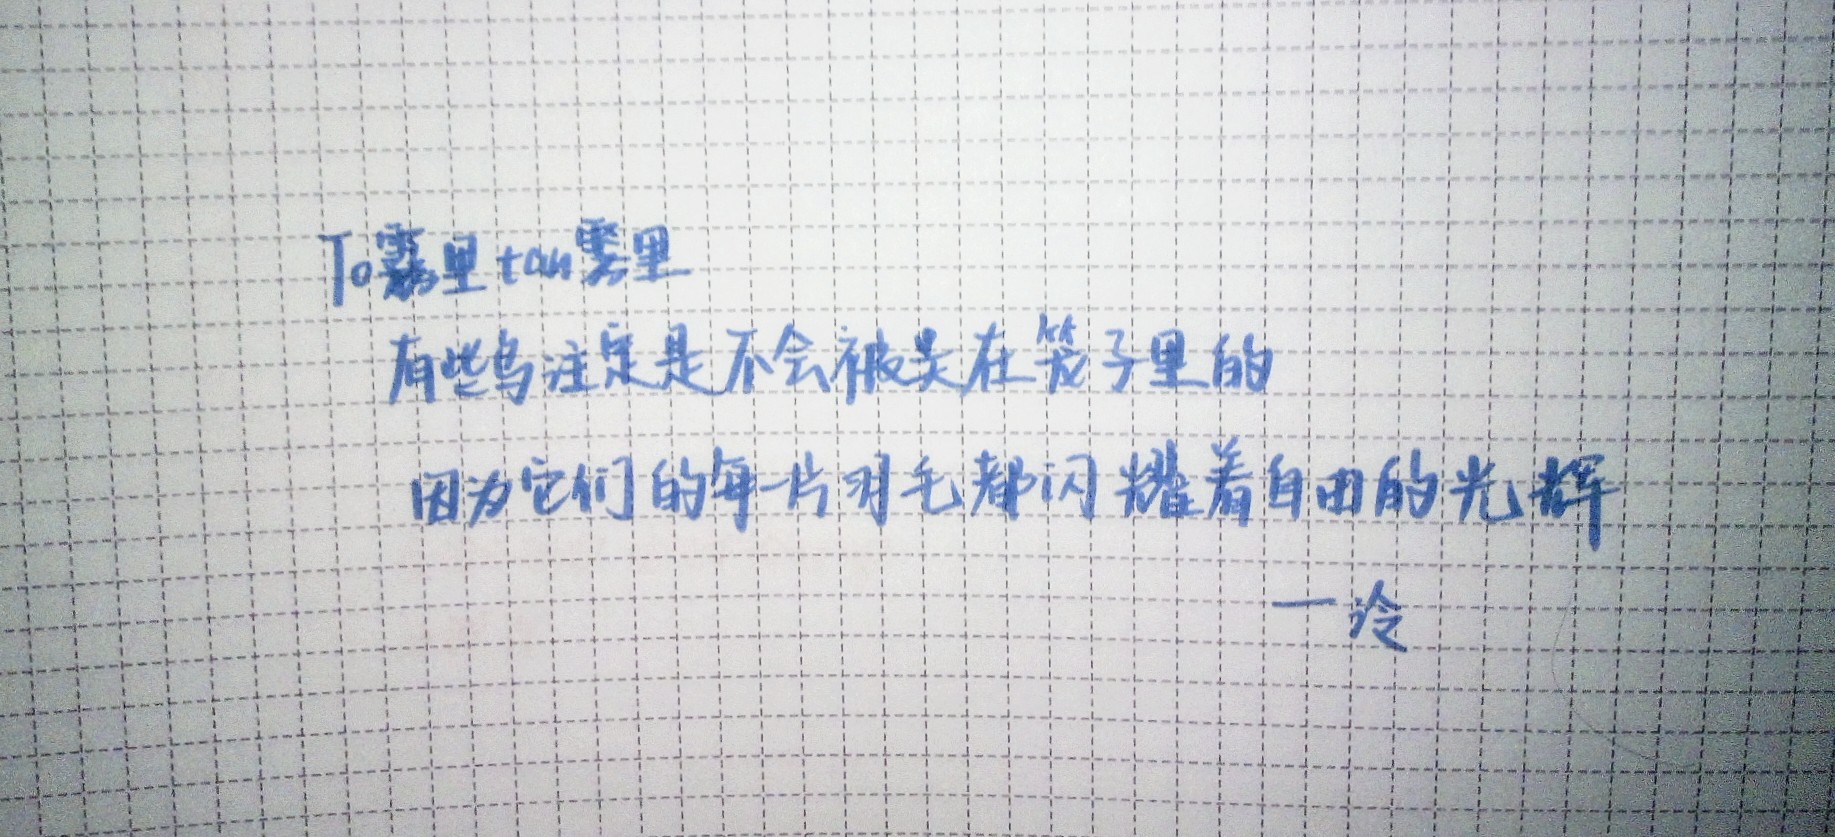 To雾里tan雾里
有些鸟注定是不会被关在笼子里的
因为它们的每一片羽毛都闪耀着自由的光辉
一泠